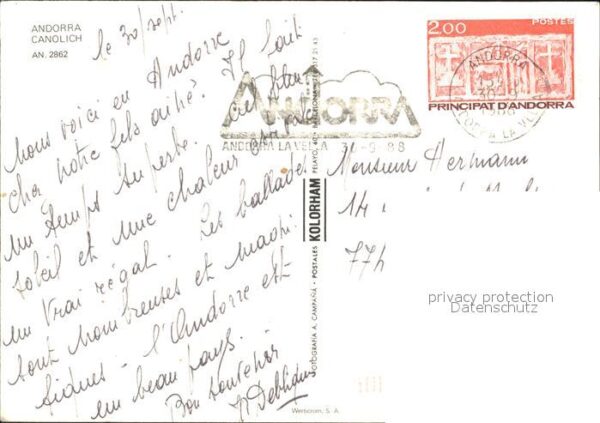 ANDORRA
CANOLICH
AN. 2862
le 30/sept.
Nous voici en Andorre
chez notre fils aîné. Il fait
un temps superbe. ciel bleu
soleil et une chaleur
un vrai régal. Les ballades
sont nombreuses et magni
fiques - l'Andorre est
un beau pays.
Bon souvenir
2.00 POSTES
PRINCIPAT D'ANDORRA
ANDORRA
1988
ANDORRA
ANDORRA LA VELLA 30-9-88
Monsieur Hermann
14
77
POSTALES KOLORHAM
FOTOGRAFIA A. CAMPAÑÁ
Wersicrom, S. A.
privacy protection
Datenschutz